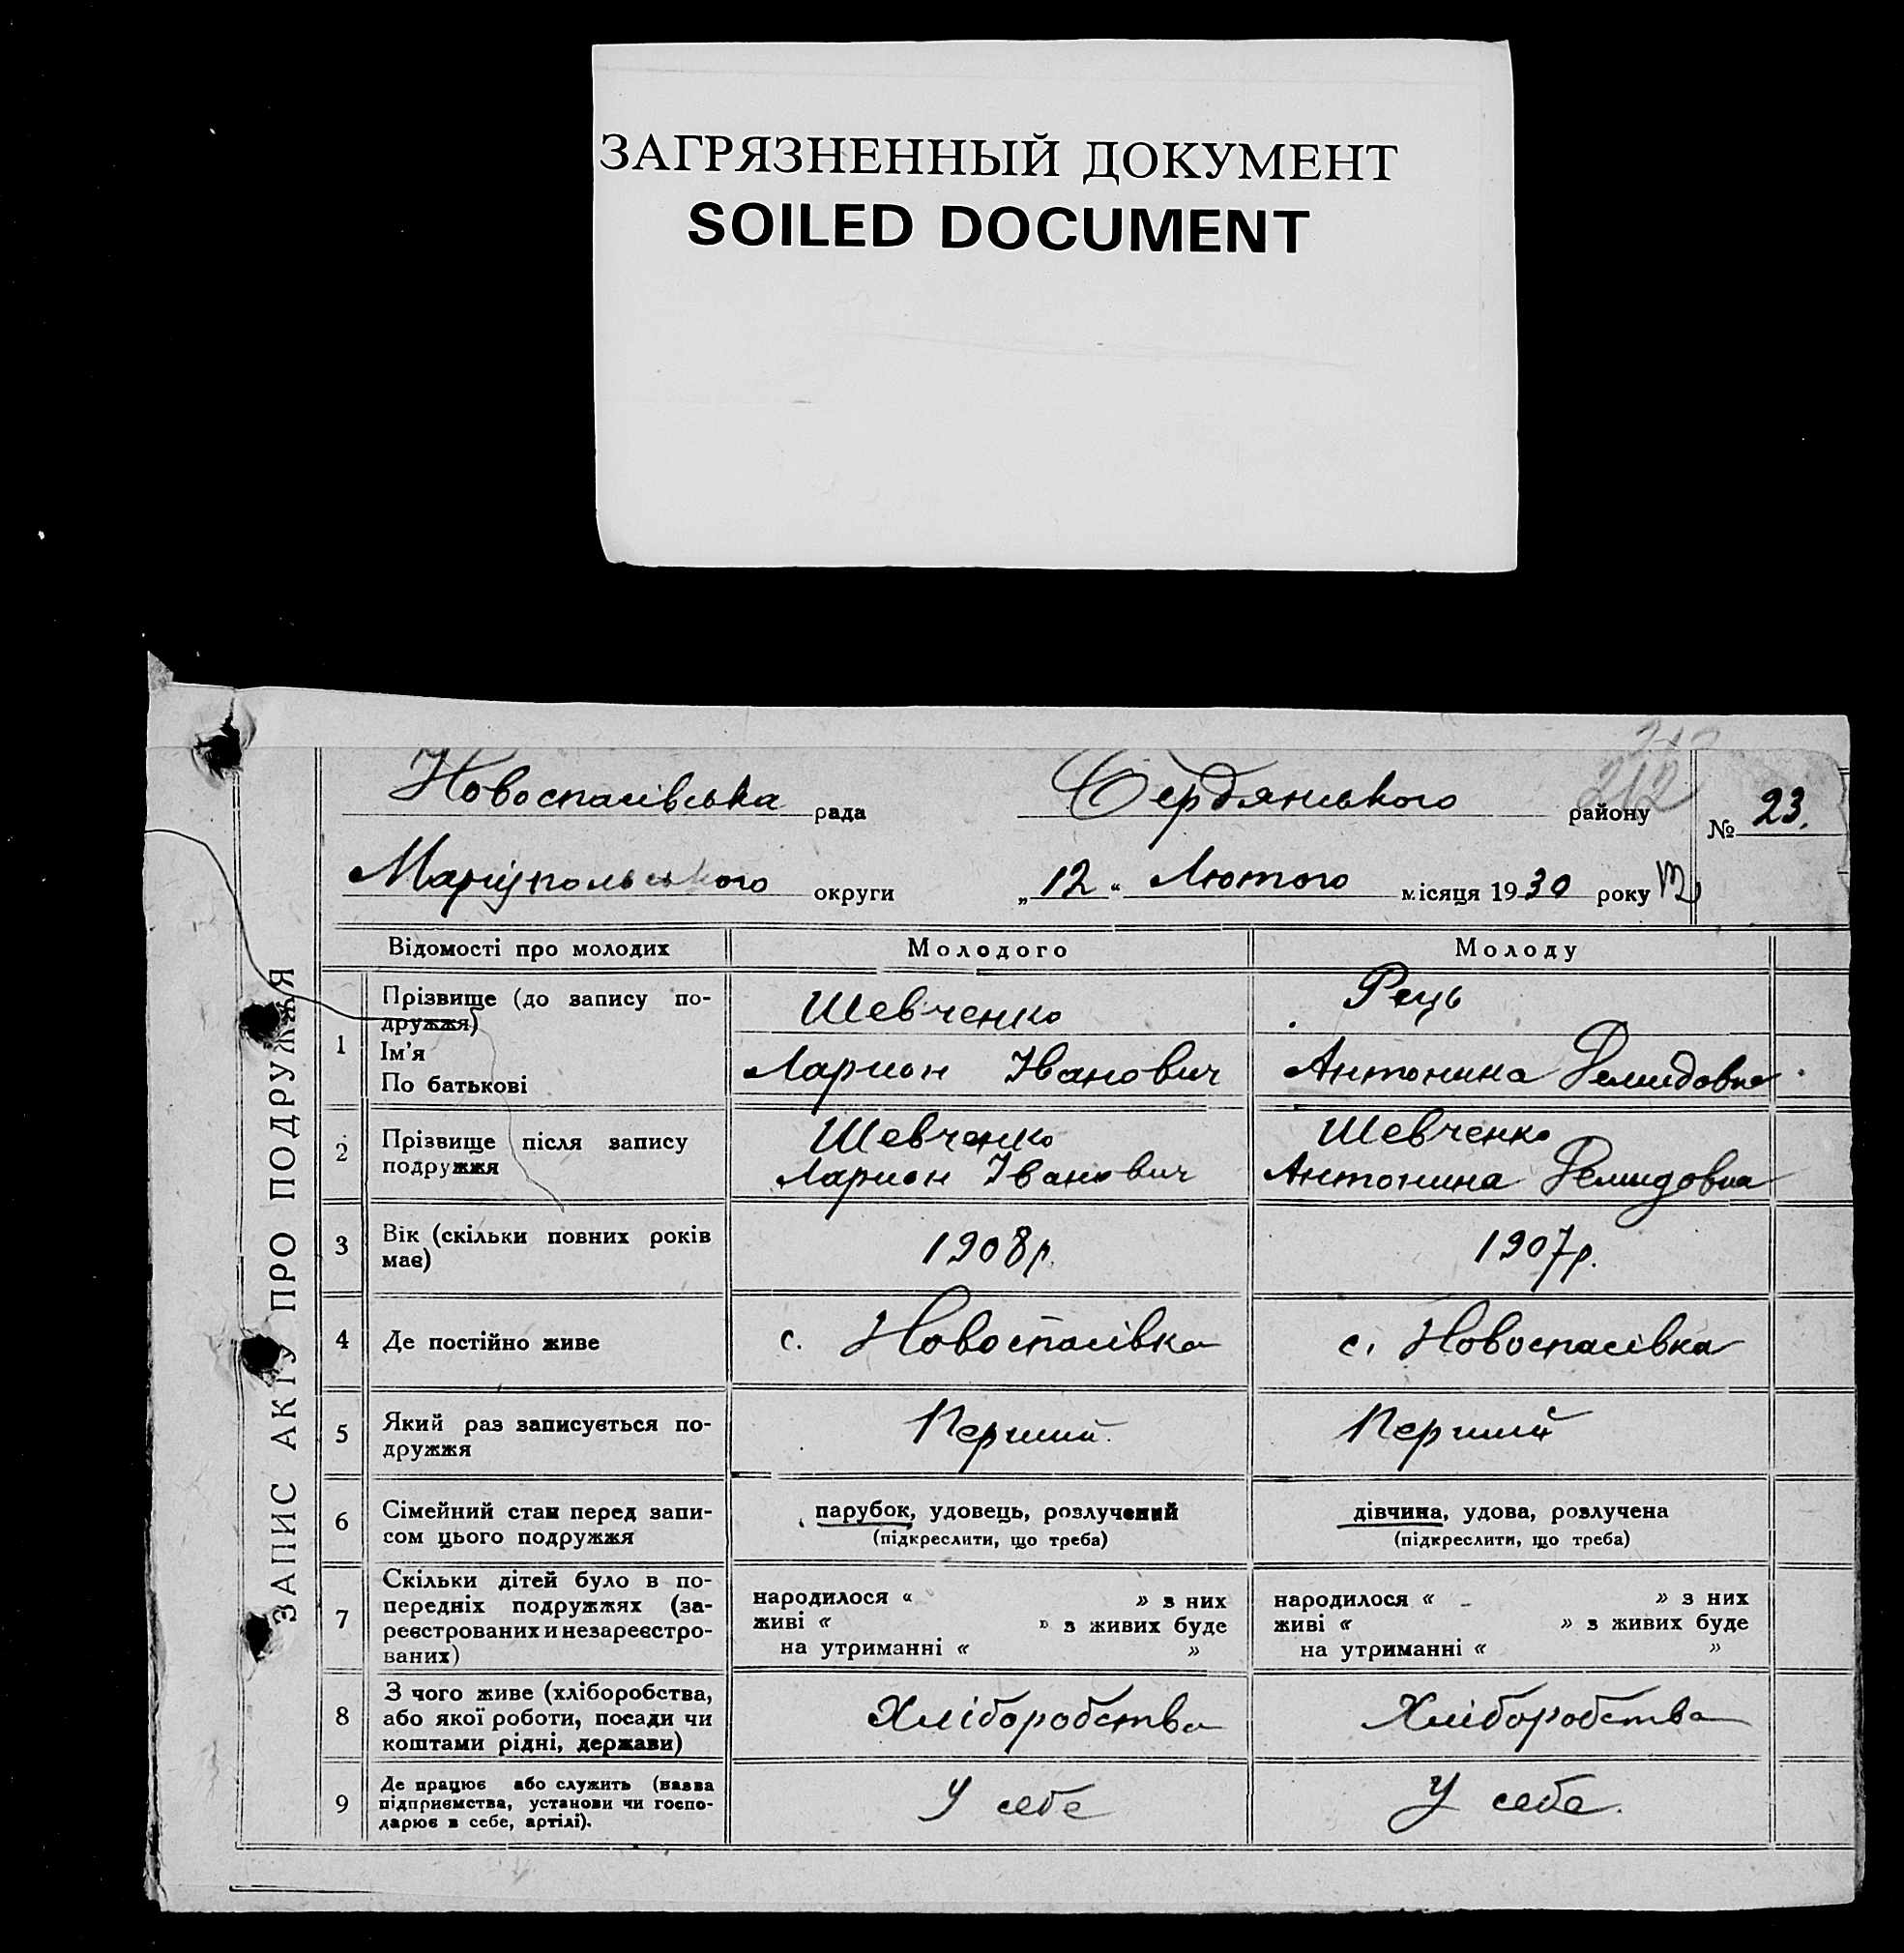 ЗАГРЯЗНЕННЫЙ ДОКУМЕНТ
SOILED DOCUMENT
212
Новоспасівська рада Бердянського району № 23.
Маріупольського округи „12“ Лютого місяця 1930 року
ЗАПИС АКТУ ПРО ПОДРУЖЖЯ
Відомості про молодих Молодого Молоду
1 Прізвище (до запису по-
дружжя)
Ім'я
По батькові
Шевченко
Ларион Іванович
Рець
Антонина Демидовна
2 Прізвище після запису
подружжя
Шевченко
Ларион Іванович
Шевченко
Антонина Демидовна
3 Вік (скільки повних років
має)
1908р.
1907р.
4 Де постійно живе
с. Новоспасівка
с. Новоспасівка
5 Який раз записується по-
дружжя
Перший
Перший
6 Сімейний стан перед запи-
сом цього подружжя
парубок, удовець, розлучений
(підкреслити, що треба)
дівчина, удова, розлучена
(підкреслити, що треба)
7 Скільки дітей було в по-
передніх подружжях (за-
реєстрованих и незареєстро-
ваних)
народилося « » з них
живі « » з живих буде
на утриманні « »
народилося « » з них
живі « » з живих буде
на утриманні « »
8 З чого живе (хліборобства,
або якої роботи, посади чи
коштами рідні, держави)
Хліборобства
Хліборобства
9 Де працює або служить (назва
підприємства, установи чи госпо-
дарює в себе, артілі).
У себе
У себе.